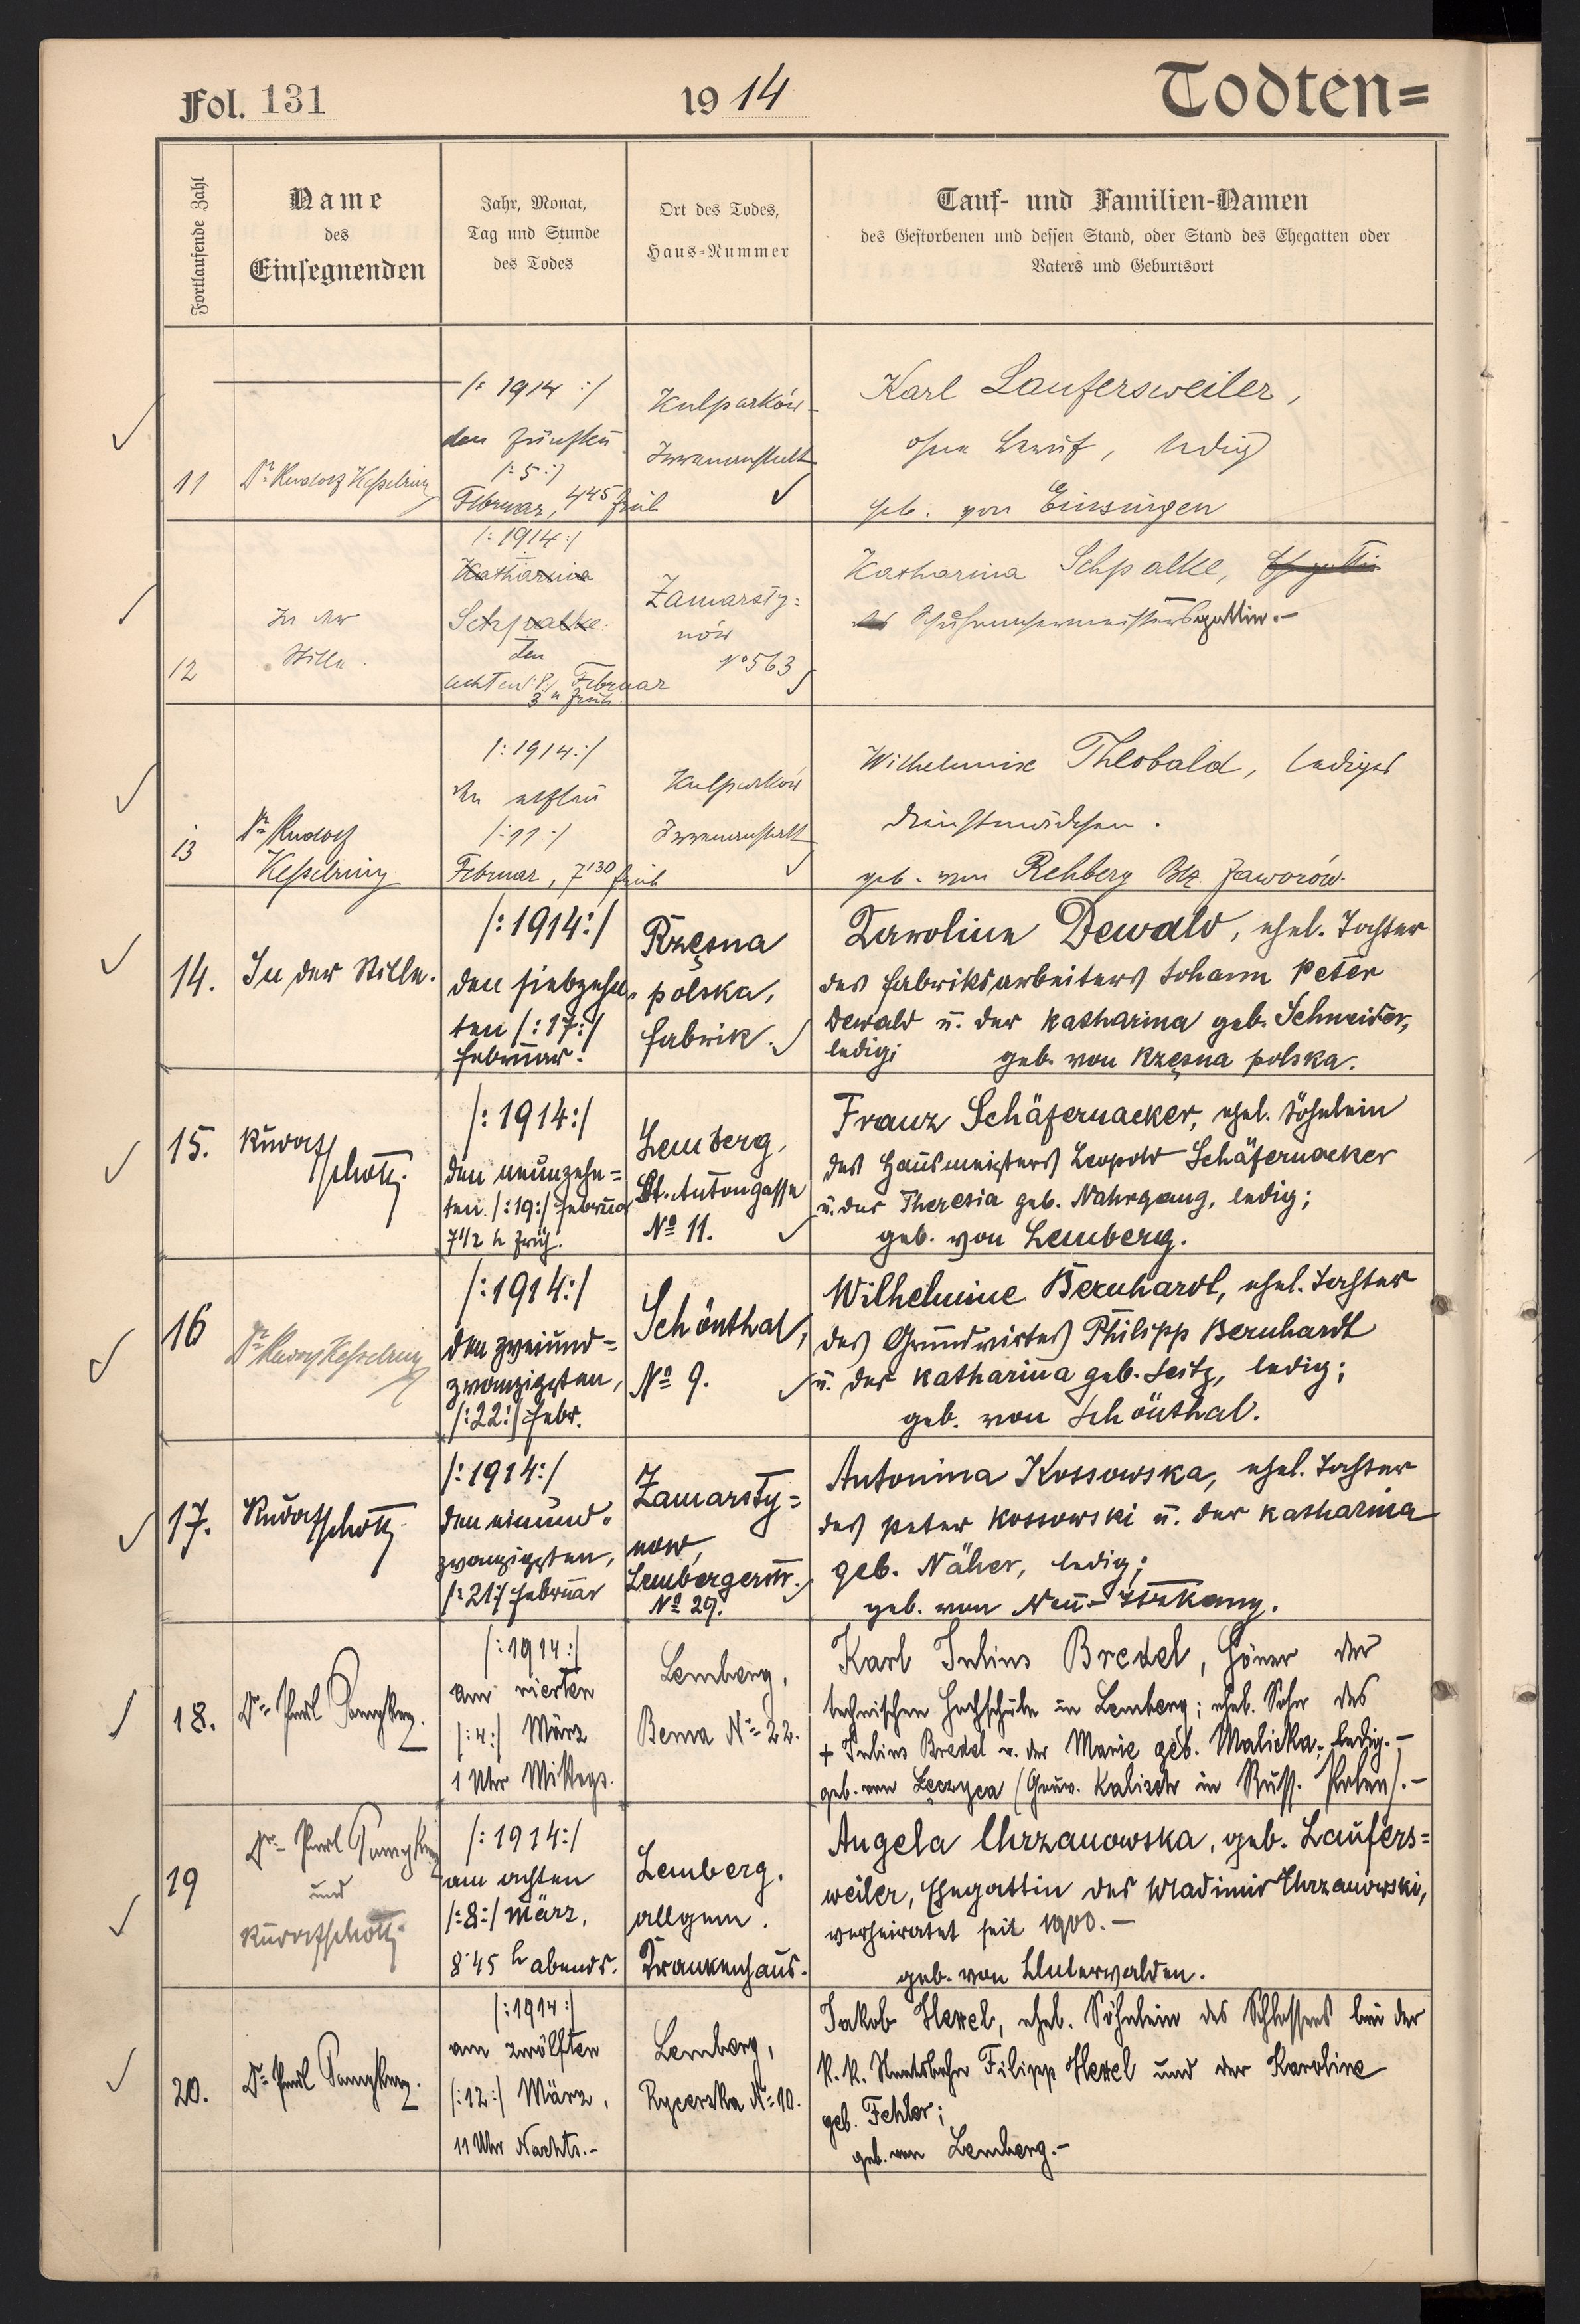 Fol. 131
19 14
Todten=
Fortlaufende Zahl
Name
des
Einsegnenden
Jahr, Monat,
Tag und Stunde
des Todes
Ort des Todes,
Haus-Nummer
Tauf- und Familien-Namen
des Gestorbenen und dessen Stand, oder Stand des Ehegatten oder
Vaters und Geburtsort
11
Dr. Rudolf Kesselring
/: 1914 :/
den fünften
/: 5 :/
Februar, 4 45 früh
Kulparków
Irrenanstalt
Karl Laufersweiler,
ohne Beruf, ledig
geb. von Einsingen
12
In der
Stille.
/: 1914 :/
Katharina
Schpalke.
den
achten /:8:/ Februar
3 u früh.
Zamarsty=
nów
No 563
Katharina Schpalke,
Schuhmachermeistersgattin.-
13
Dr. Rudolf
Kesselring
/: 1914 :/
den elften
/: 11 :/
Februar, 7'30 früh
Kulparków
Irrenanstalt
Wilhelmine Theobald, lediges
Dienstmädchen.
geb. von Rehberg Bez. Jaworów.
14.
In der Stille.
/: 1914 :/
den siebzehn=
ten /: 17 :/
Februar.
Rzęsna
polska,
Fabrik.
Karoline Dewald, ehel. Tochter
des Fabriksarbeiters Johann Peter
Dewald u. der Katharina geb. Schneider,
ledig; geb. von Rzęsna polska.
15.
Rudolf
Schott.
/: 1914 :/
den neunzehn=
ten /: 19 :/ Februar
7 1/2 h früh.
Lemberg,
St. Antongasse
No 11.
Franz Schäfernacker, ehel. Söhnlein
des Hausmeisters Leopold Schäfernacker
u. der Theresia geb. Nahrgang, ledig;
geb. von Lemberg.
16
Dr. Rudolf Kesselring
/: 1914 :/
den zweiund=
zwanzigsten,
/: 22 :/ Febr.
Schönthal,
No 9.
Wilhelmine Bernhardt, ehel. Tochter
des Grundwirtes Philipp Bernhardt
u. der Katharina geb. Seitz, ledig;
geb. von Schönthal.
17.
Rudolf Schott
/: 1914 :/
den einund=
zwanzigsten,
/: 21 :/ Februar
Zamarsty=
now,
Lembergerstr.
No 29.
Antonina Kossowska, ehel. Tochter
des Peter Kossowski u. der Katharina
geb. Näher, ledig;
geb. von Neu-
18.
Dr. Paul
/: 1914 :/
am vierten
/: 4 :/ März
1 Uhr Mittags.
Lemberg,
Bema No 22.
Karl Julius Bredel, Hörer der
technischen Hochschule in Lemberg; ehel. Sohn des
+ Julius Bredel u. der Marie geb. Malicka; ledig.-
geb. von Łęczyca (Gouv. Kalisch in Russ. Polen).-
19
Dr. Paul
und
Rudolf Schott
/: 1914 :/
am achten
/: 8 :/ März,
8'45 h abends.
Lemberg.
allgem.
Krankenhaus.
Angela Chrzanowska, geb. Laufers=
weiler, Ehegattin des Wladimir Chrzanowski,
verheiratet seit 1900.-
geb. von Unterwalden.
20.
Dr. Paul
/: 1914 :/
am zwölften
/: 12 :/ März,
11 Uhr Nachts.-
Lemberg,
Rycerska No 10.
Jakob Hexel, ehel. Söhnlein des Schlossers bei der
k. k. Staatsbahn Filipp Hexel und der Karoline
geb. Fehler;
geb. von Lemberg.-